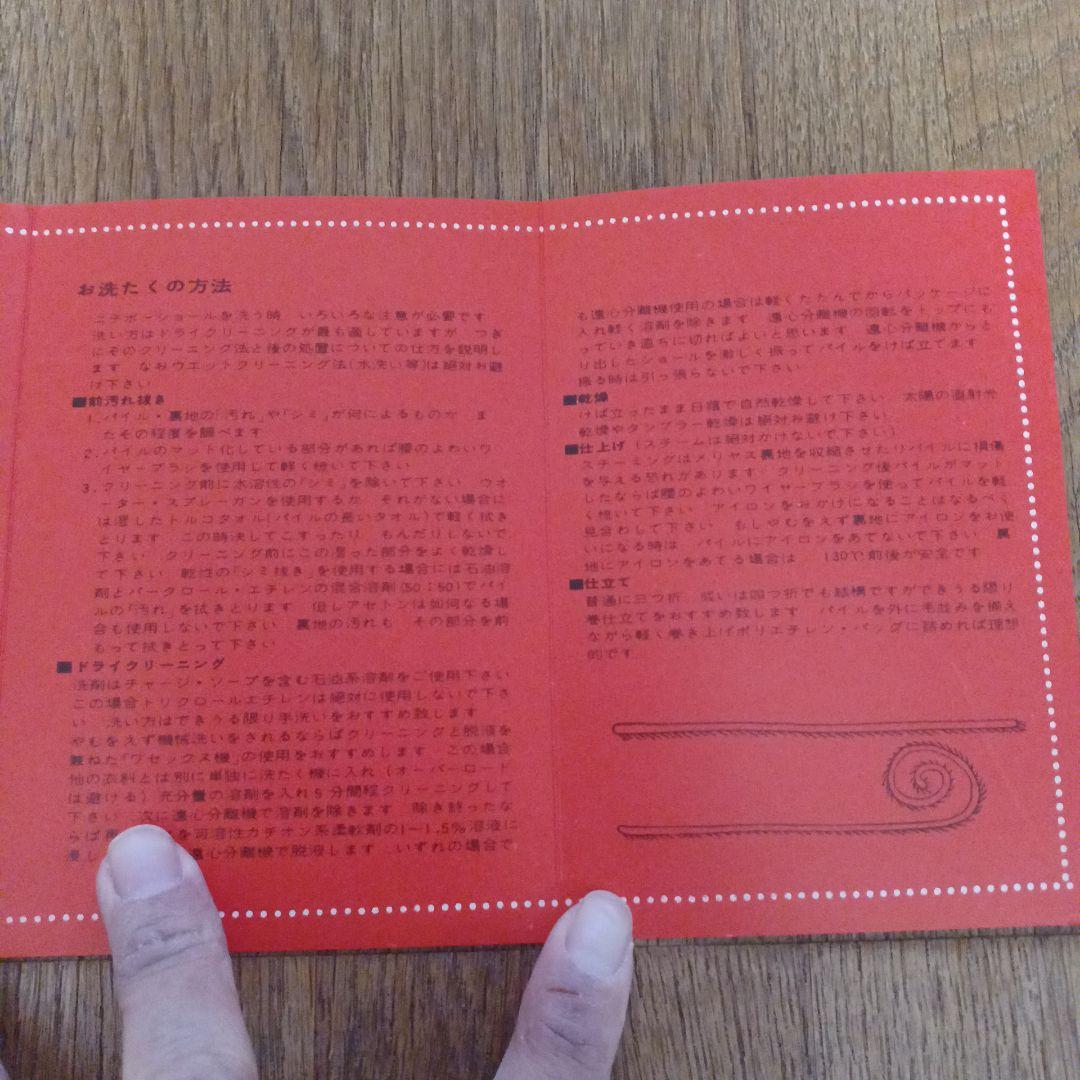 お洗たくの方法
ニチボーショールを洗う時 いろいろな注意が必要です
洗い方はドライクリーニングが最も適していますが つぎ
にそのクリーニング法と後の処置についての仕方を説明し
ます なおウエットクリーニング法(水洗い等)は絶対お避
け下さい
■前汚れ抜き
1. パイル・裏地の「汚れ」や「シミ」が何によるものか ま
たその程度を調べます
2. パイルのマット化している部分があれば腰のよわいワ
イヤーブラシを使用して軽く梳いて下さい
3. クリーニング前に水溶性の「シミ」を除いて下さい ウオ
ーター・スプレーガンを使用するか それがない場合に
は湿したトルコタオル(パイルの長いタオル)で軽く拭き
とります この時決してこすったり もんだりしないで
下さい クリーニング前にこの湿った部分をよく乾燥し
て下さい 乾性の「シミ抜き」を使用する場合には石油溶
剤とパークロール・エチレンの混合溶剤(50:50)でパイ
ルの「汚れ」を拭きとります 但しアセトンは如何なる場
合も使用しないで下さい 裏地の汚れも その部分を前
もって拭きとって下さい
■ドライクリーニング
洗剤はチャージ・ソープを含む石油系溶剤をご使用下さい
この場合トリクロールエチレンは絶対に使用しないで下さ
い 洗い方はできうる限り手洗いをおすすめ致します
やむをえず機械洗いをされるならばクリーニングと脱液を
兼ねた「ワセックス機」の使用をおすすめします この場合
他の衣料とは別に単独に洗たく機に入れ(オーバーロード
は避ける)充分量の溶剤を入れ5分間程クリーニングして
下さい 次に遠心分離機で溶剤を除きます 除き終ったな
らば を可溶性カチオン系柔軟剤の1~1.5%溶液に
浸し 遠心分離機で脱液します いずれの場合で
も遠心分離機使用の場合は軽くたたんでからパッケージに
入れ軽く溶剤を除きます 遠心分離機の回転をトップにも
っていき直ちに切ればよいと思います 遠心分離機からと
り出したショールを激しく振ってパイルをけば立てます
振る時は引っ張らないで下さい
■乾燥
けば立ったまま日陰で自然乾燥して下さい 太陽の直射光
乾燥やタンブラー乾燥は絶対お避け下さい
■仕上げ(スチームは絶対かけないで下さい)
スチーミングはメリヤス裏地を収縮させたりパイルに損傷
を与える恐れがあります クリーニング後パイルがマット
したならば腰のよわいワイヤーブラシを使ってパイルを軽
く梳いて下さい アイロンをおかけになることはなるべく
見合わして下さい もしやむをえず裏地にアイロンをお使
いになる時は パイルにアイロンをあてないで下さい 裏
地にアイロンをあてる場合は 130℃前後が安全です
■仕立て
普通に三つ折 或いは四つ折でも結構ですができうる限り
巻仕立てをおすすめ致します パイルを外に毛並みを揃え
ながら軽く巻き上げポリエチレン・バッグに詰めれば理想
的です